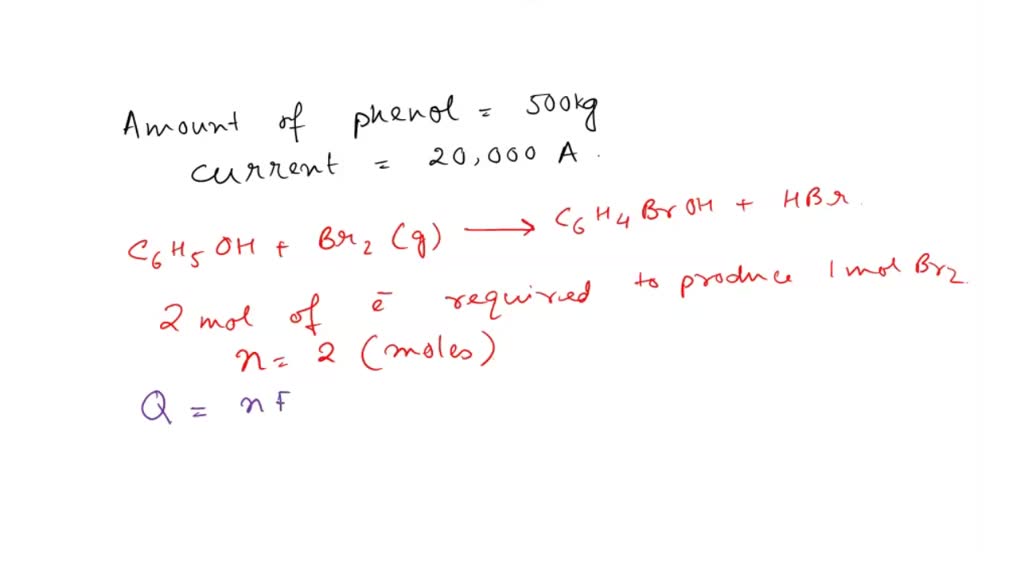 Amount of phenol = 500kg
current = 20,000 A.
C₆H₅OH + Br₂ (g) ⟶ C₆H₄BrOH + HBr.
2 mol of e⁻ required to produce 1 mol Br₂.
n = 2 (moles)
Q = nF